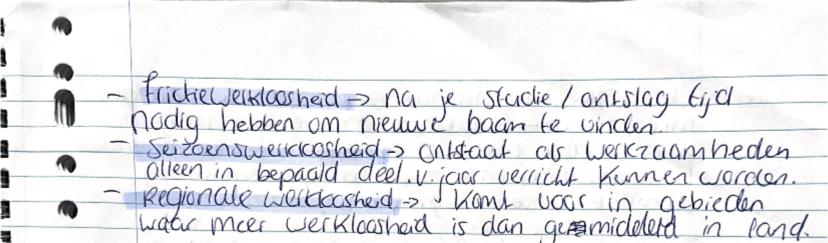 - frictiewerkloosheid -> na je studie / ontslag tijd
nodig hebben om nieuwe baan te vinden.
- Seizoenswerkloosheid -> ontstaat als werkzaamheden
alleen in bepaald deel v. jaar verricht kunnen worden.
- Regionale werkloosheid -> komt voor in gebieden
waar meer werkloosheid is dan gemiddeld in land.